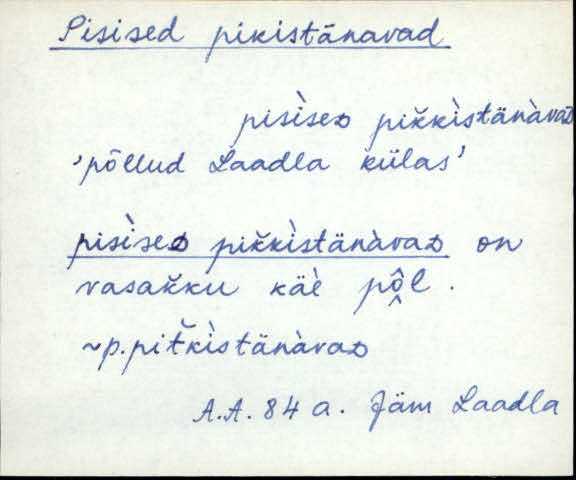 Pisised pikistänavad
pisìseᴅ pik̆kìstänàvaᴅ
'põllud Laadla külas'
pisìseᴅ pik̆kìstänàvaᴅ on
vasak̆ku käè pô̭l.
~p.pit̆kìstänàvaᴅ
A.A. 84 a. Jäm Laadla